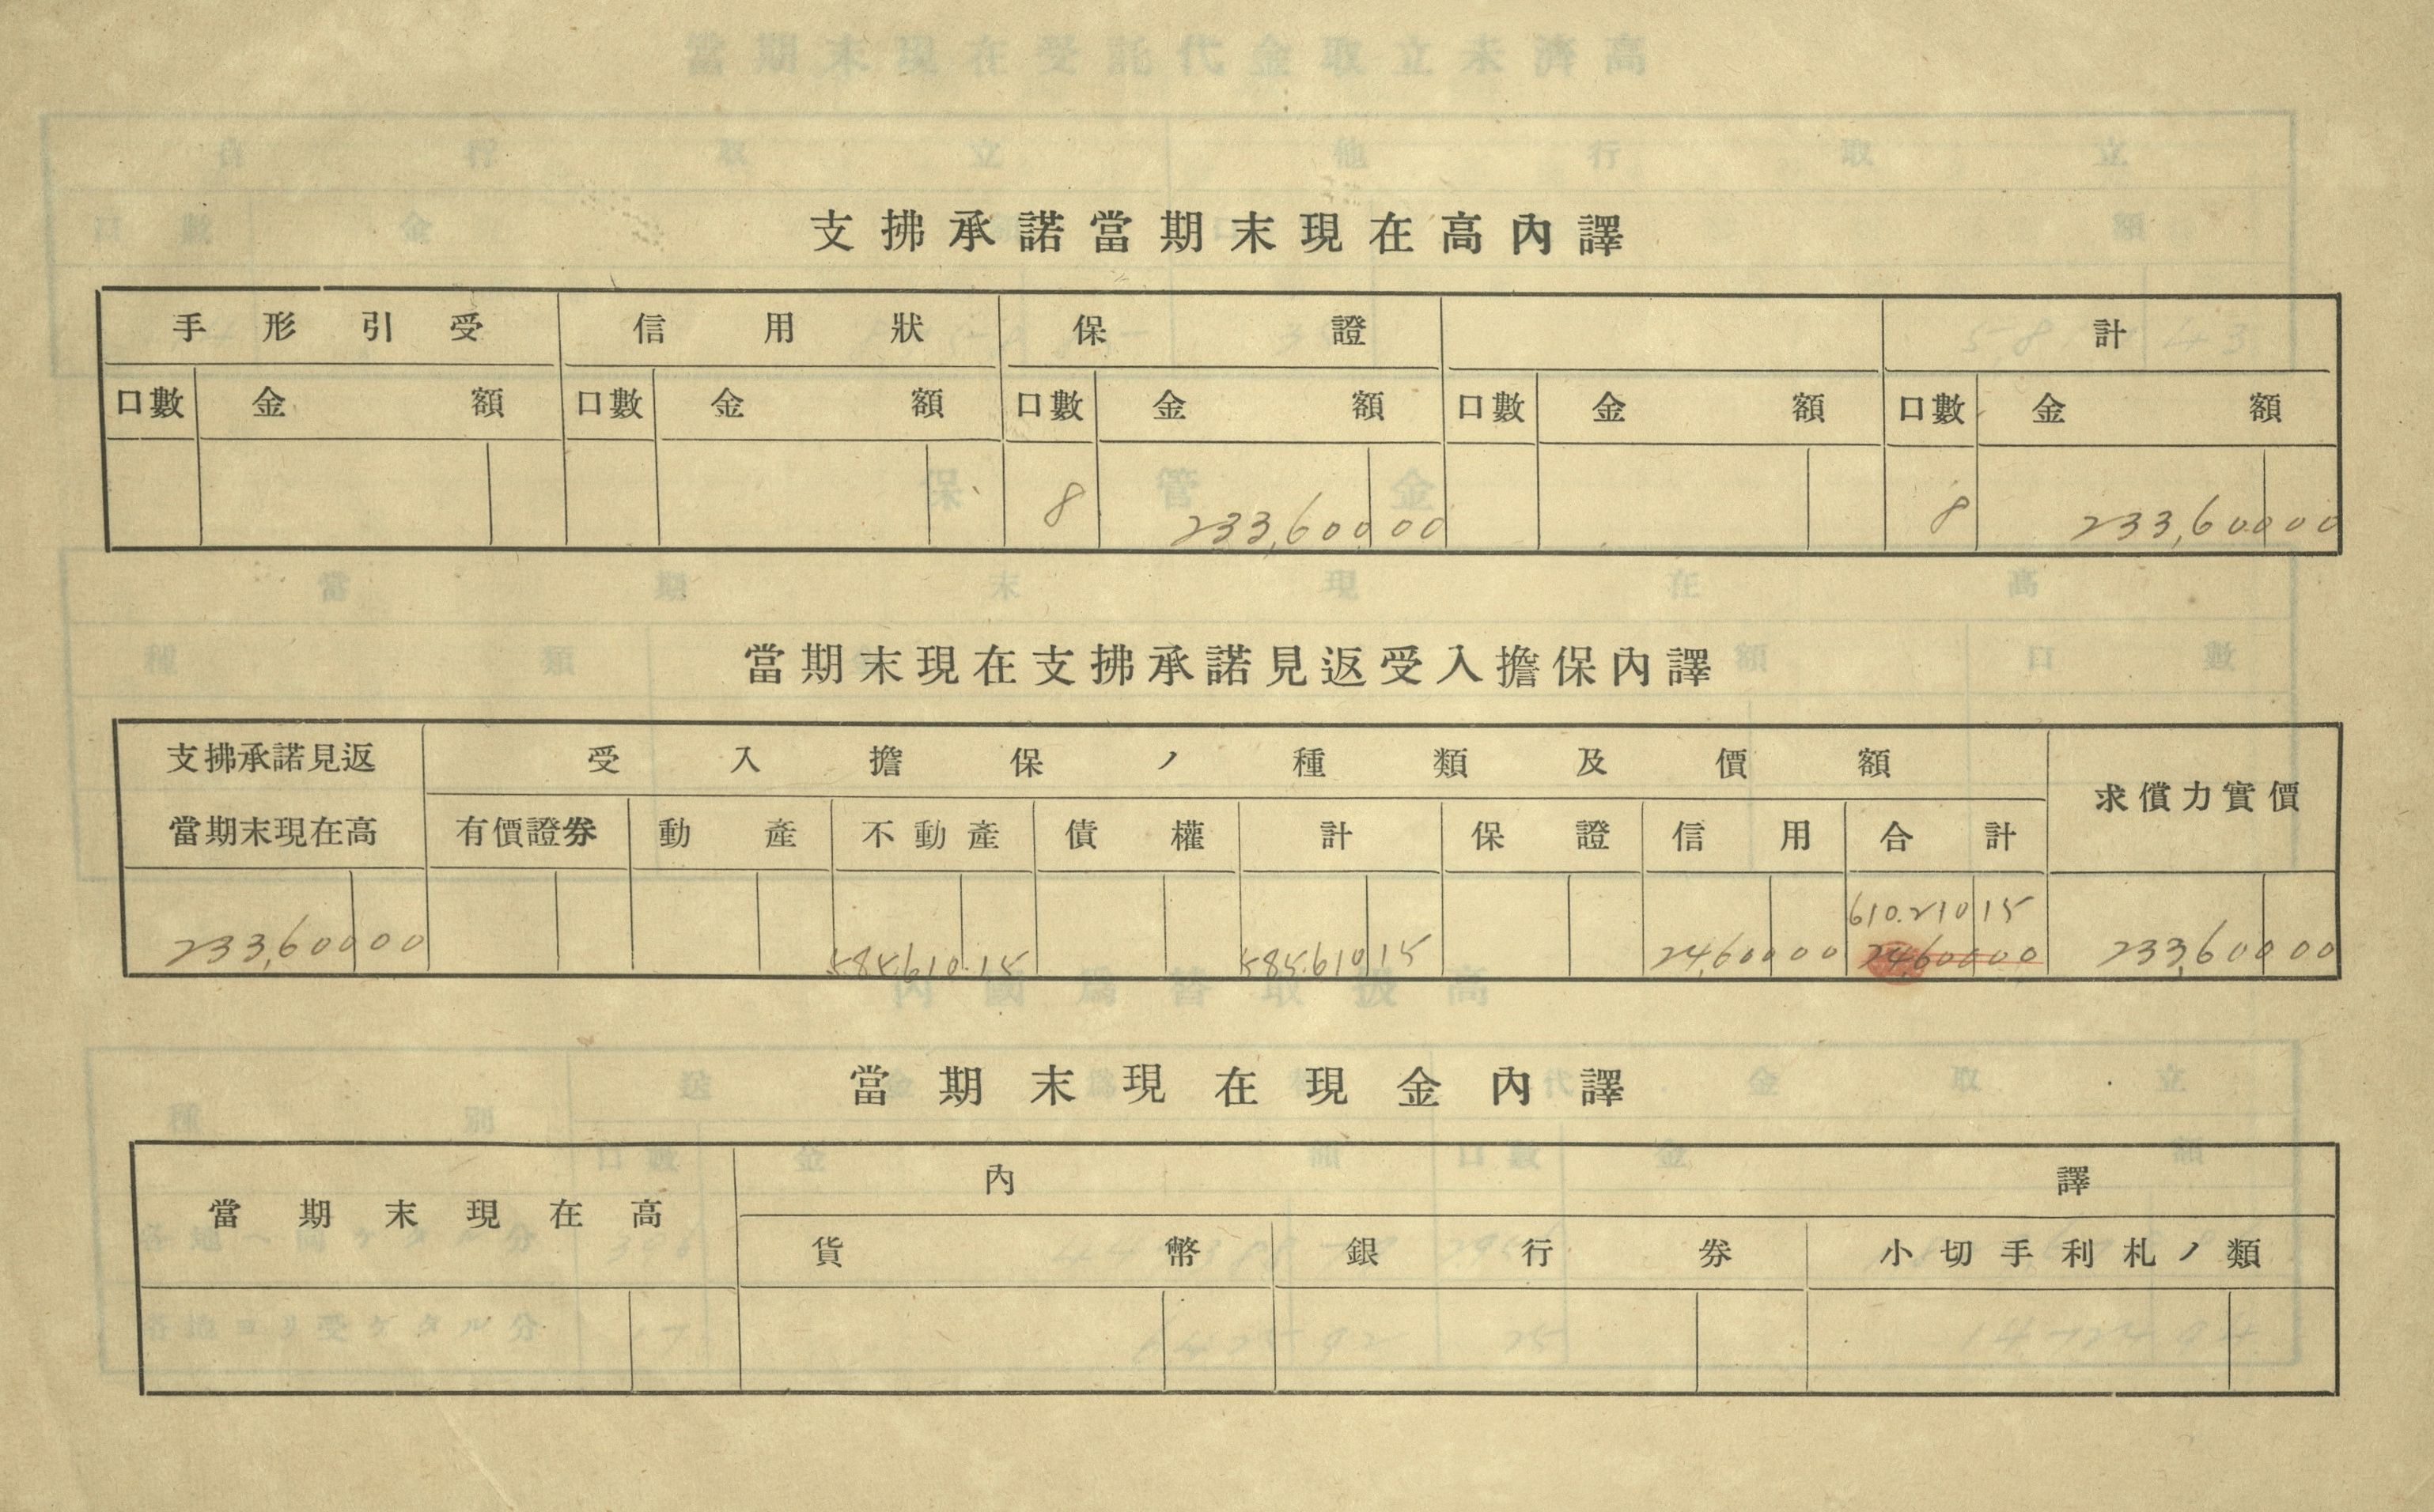 支拂承諾當期末現在高內譯
手形引受 信用狀 保證 計
口數 金額 口數 金額 口數 金額 口數 金額 口數 金額
8 233,600 00 8 233,600 00
當期末現在支拂承諾見返受入擔保內譯
支拂承諾見返 受入擔保ノ種類及價額
當期末現在高 有價證券 動產 不動產 債權 計 保證 信用 合計 求償力實價
610.210 15
233,600 00 585.610.15 585.610 15 24,600 00 24,600 00 233,600 00
當期末現在現金內譯
當期末現在高 內譯
貨幣 銀行券 小切手利札ノ類